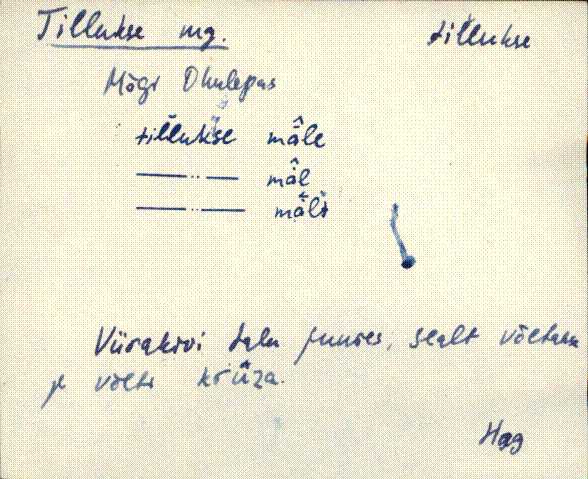 Tillukse mg. tillukse
Mõgi Ohulepas
tillukse mäle
—— ·· —— mäl
—— ·· —— mäls
Viirakivi talu juures, sealt võetakse
ja võeti krüza.
Hag